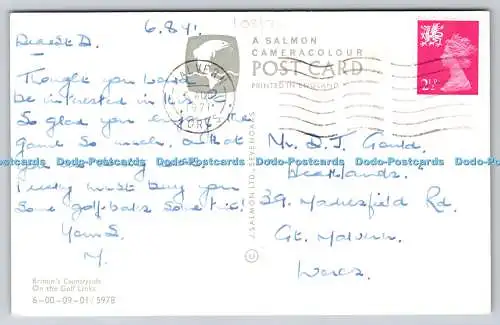 6.8.71.
Dearest D.
Thought you would
be interested in this
So glad you enjoy the
game so much, & that
you
I really must buy you
some golf-balls sometime!
Yours
M.
Britain's Countryside
On the Golf Links
6-00-09-01/5978
A SALMON
CAMERACOLOUR
POST CARD
PRINTED IN ENGLAND
J. SALMON LTD., SEVENOAKS
1971
2½P
Mr. D. J. Gould,
39. Madresfield Rd.
Gt. Malvern,
Worcs.
Dodo-Postcards Dodo-Postcards Dodo-Postcards Dodo-Postcards Dodo-Postcards Dodo-Postcards